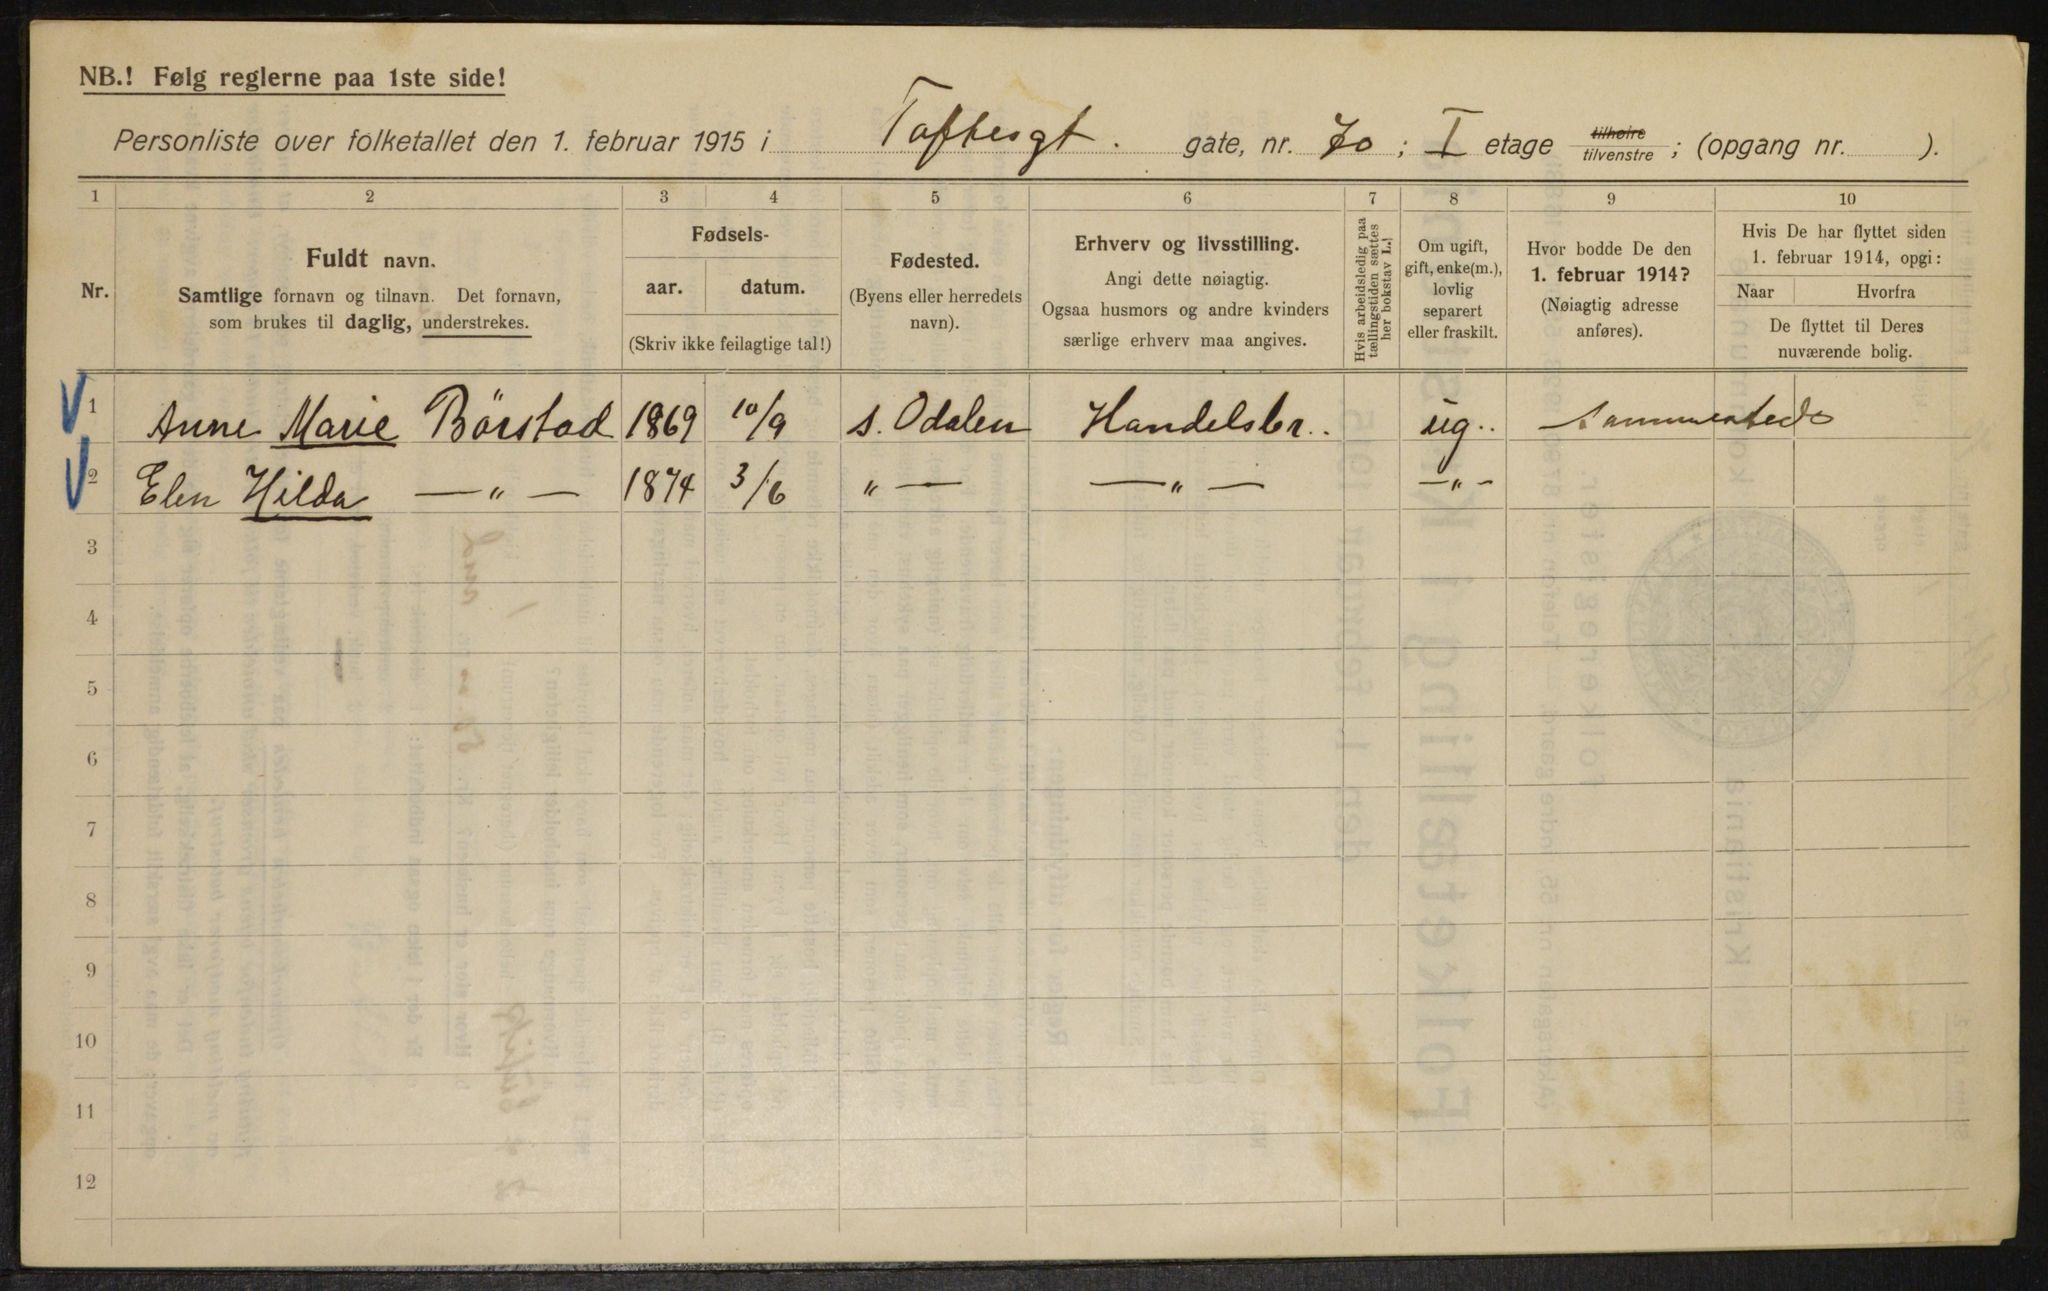 NB.! Følg reglerne paa 1ste side!
Personliste over folketallet den 1. februar 1915 i Toftesgt. gate, nr. 70 ; I etage tilhøire tilvenstre ; (opgang nr. ).
1 2 3 4 5 6 7 8 9 10
Nr.
Fuldt navn.
Samtlige fornavn og tilnavn. Det fornavn,
som brukes til daglig, understrekes.
Fødsels-
aar. datum.
(Skriv ikke feilagtige tal!)
Fødested.
(Byens eller herredets
navn).
Erhverv og livsstilling.
Angi dette nøiagtig.
Ogsaa husmors og andre kvinders
særlige erhverv maa angives.
Hvis arbeidsledig paa
tællingstiden sættes
her bokstav L.!
Om ugift,
gift, enke(m.),
lovlig
separert
eller fraskilt.
Hvor bodde De den
1. februar 1914?
(Nøiagtig adresse
anføres).
Hvis De har flyttet siden
1. februar 1914, opgi:
Naar Hvorfra
De flyttet til Deres
nuværende bolig.
1 Anne Marie Börstad 1869 10/9 s. Odalen Handelsbr.. ug.. sammesteds
2 Elen Hilda —"— 1874 3/6 "— —"— —"—
3
4
5
6
7
8
9
10
11
12